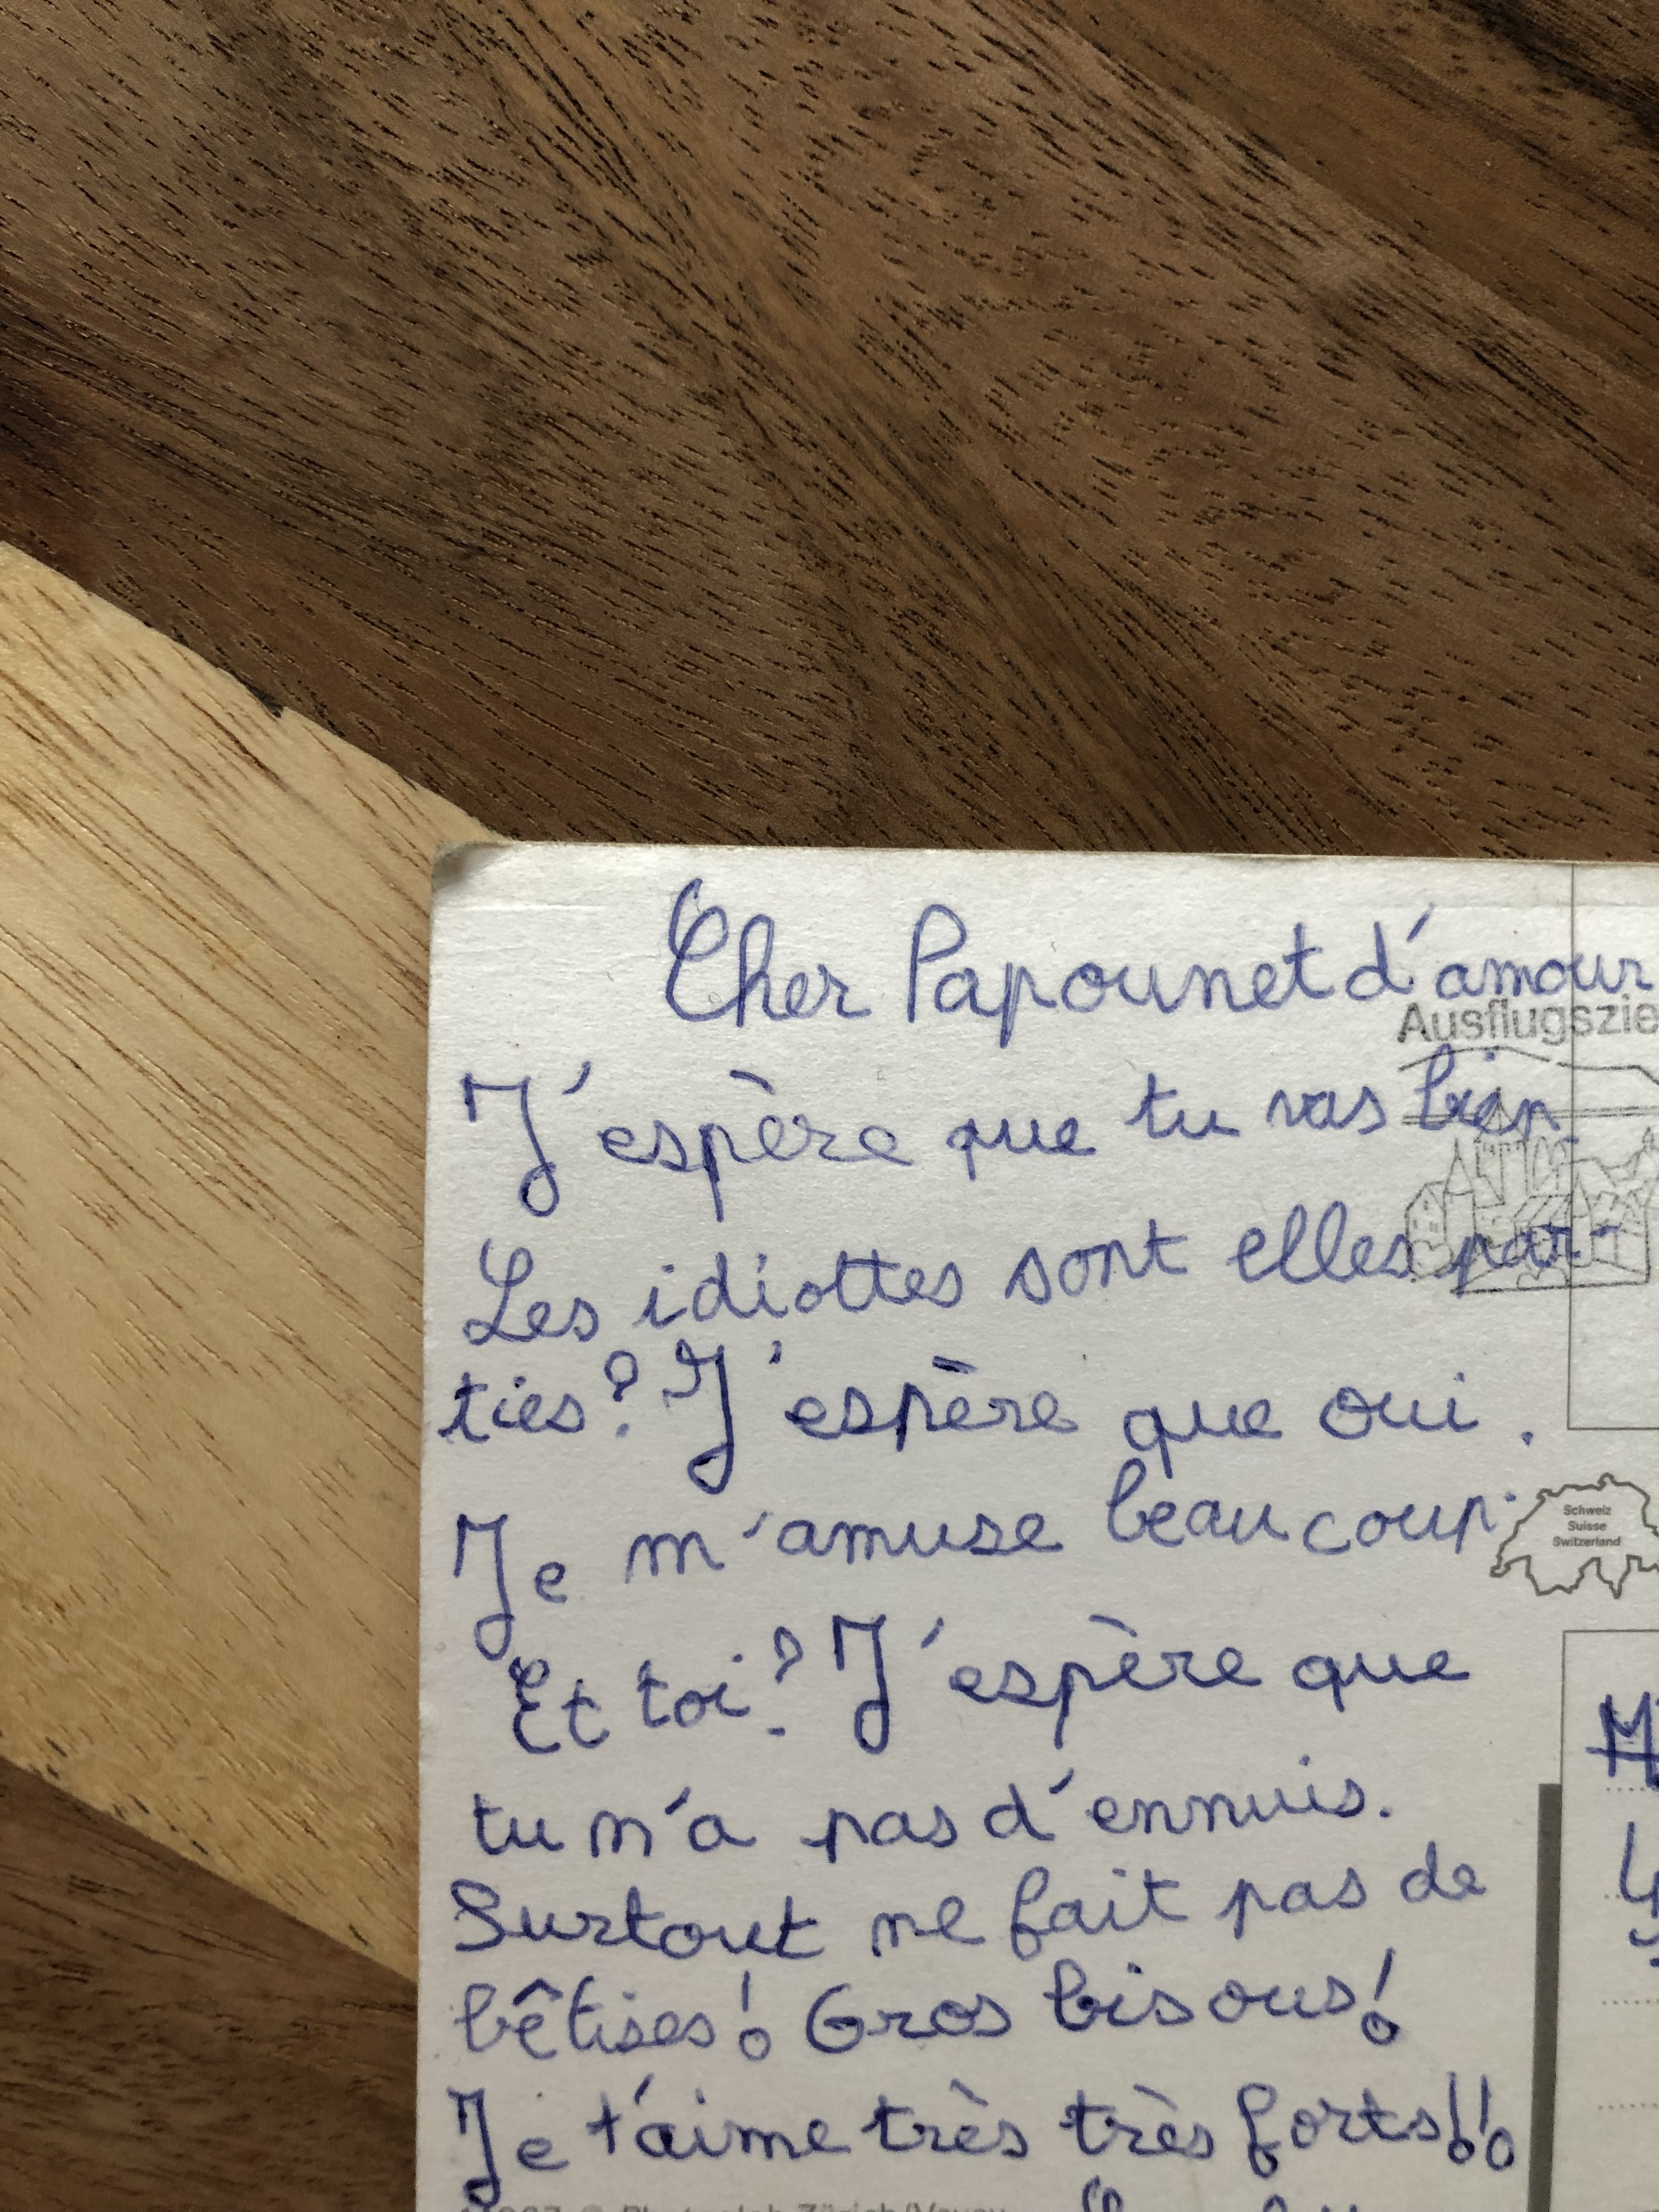 Cher Papounet d'amour
Ausflugszie
J'espère que tu vas bien
Les idiottes sont elles par-
ties? J'espère que oui.
Je m'amuse beaucoup.
Schweiz
Suisse
Switzerland
Et toi? J'espère que
tu n'a pas d'ennuis.
Surtout ne fait pas de
bêtises! Gros bisous!
Je t'aime très très forts!!